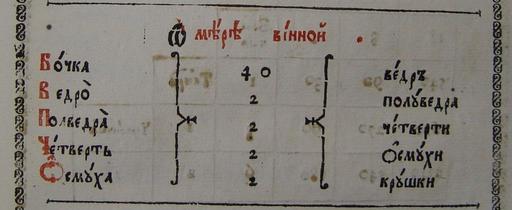 Ѿ мѣ́рѣ ві́нной .
Бо́чка 40 ве́дръ
Ведро̀ 2 полꙋведра̀
Полведра̀ 2 че́тверти
Че́тверть 2 Ѻ҆смꙋ́хи
Ѻ҆смꙋ́ха 2 крꙋ́шки